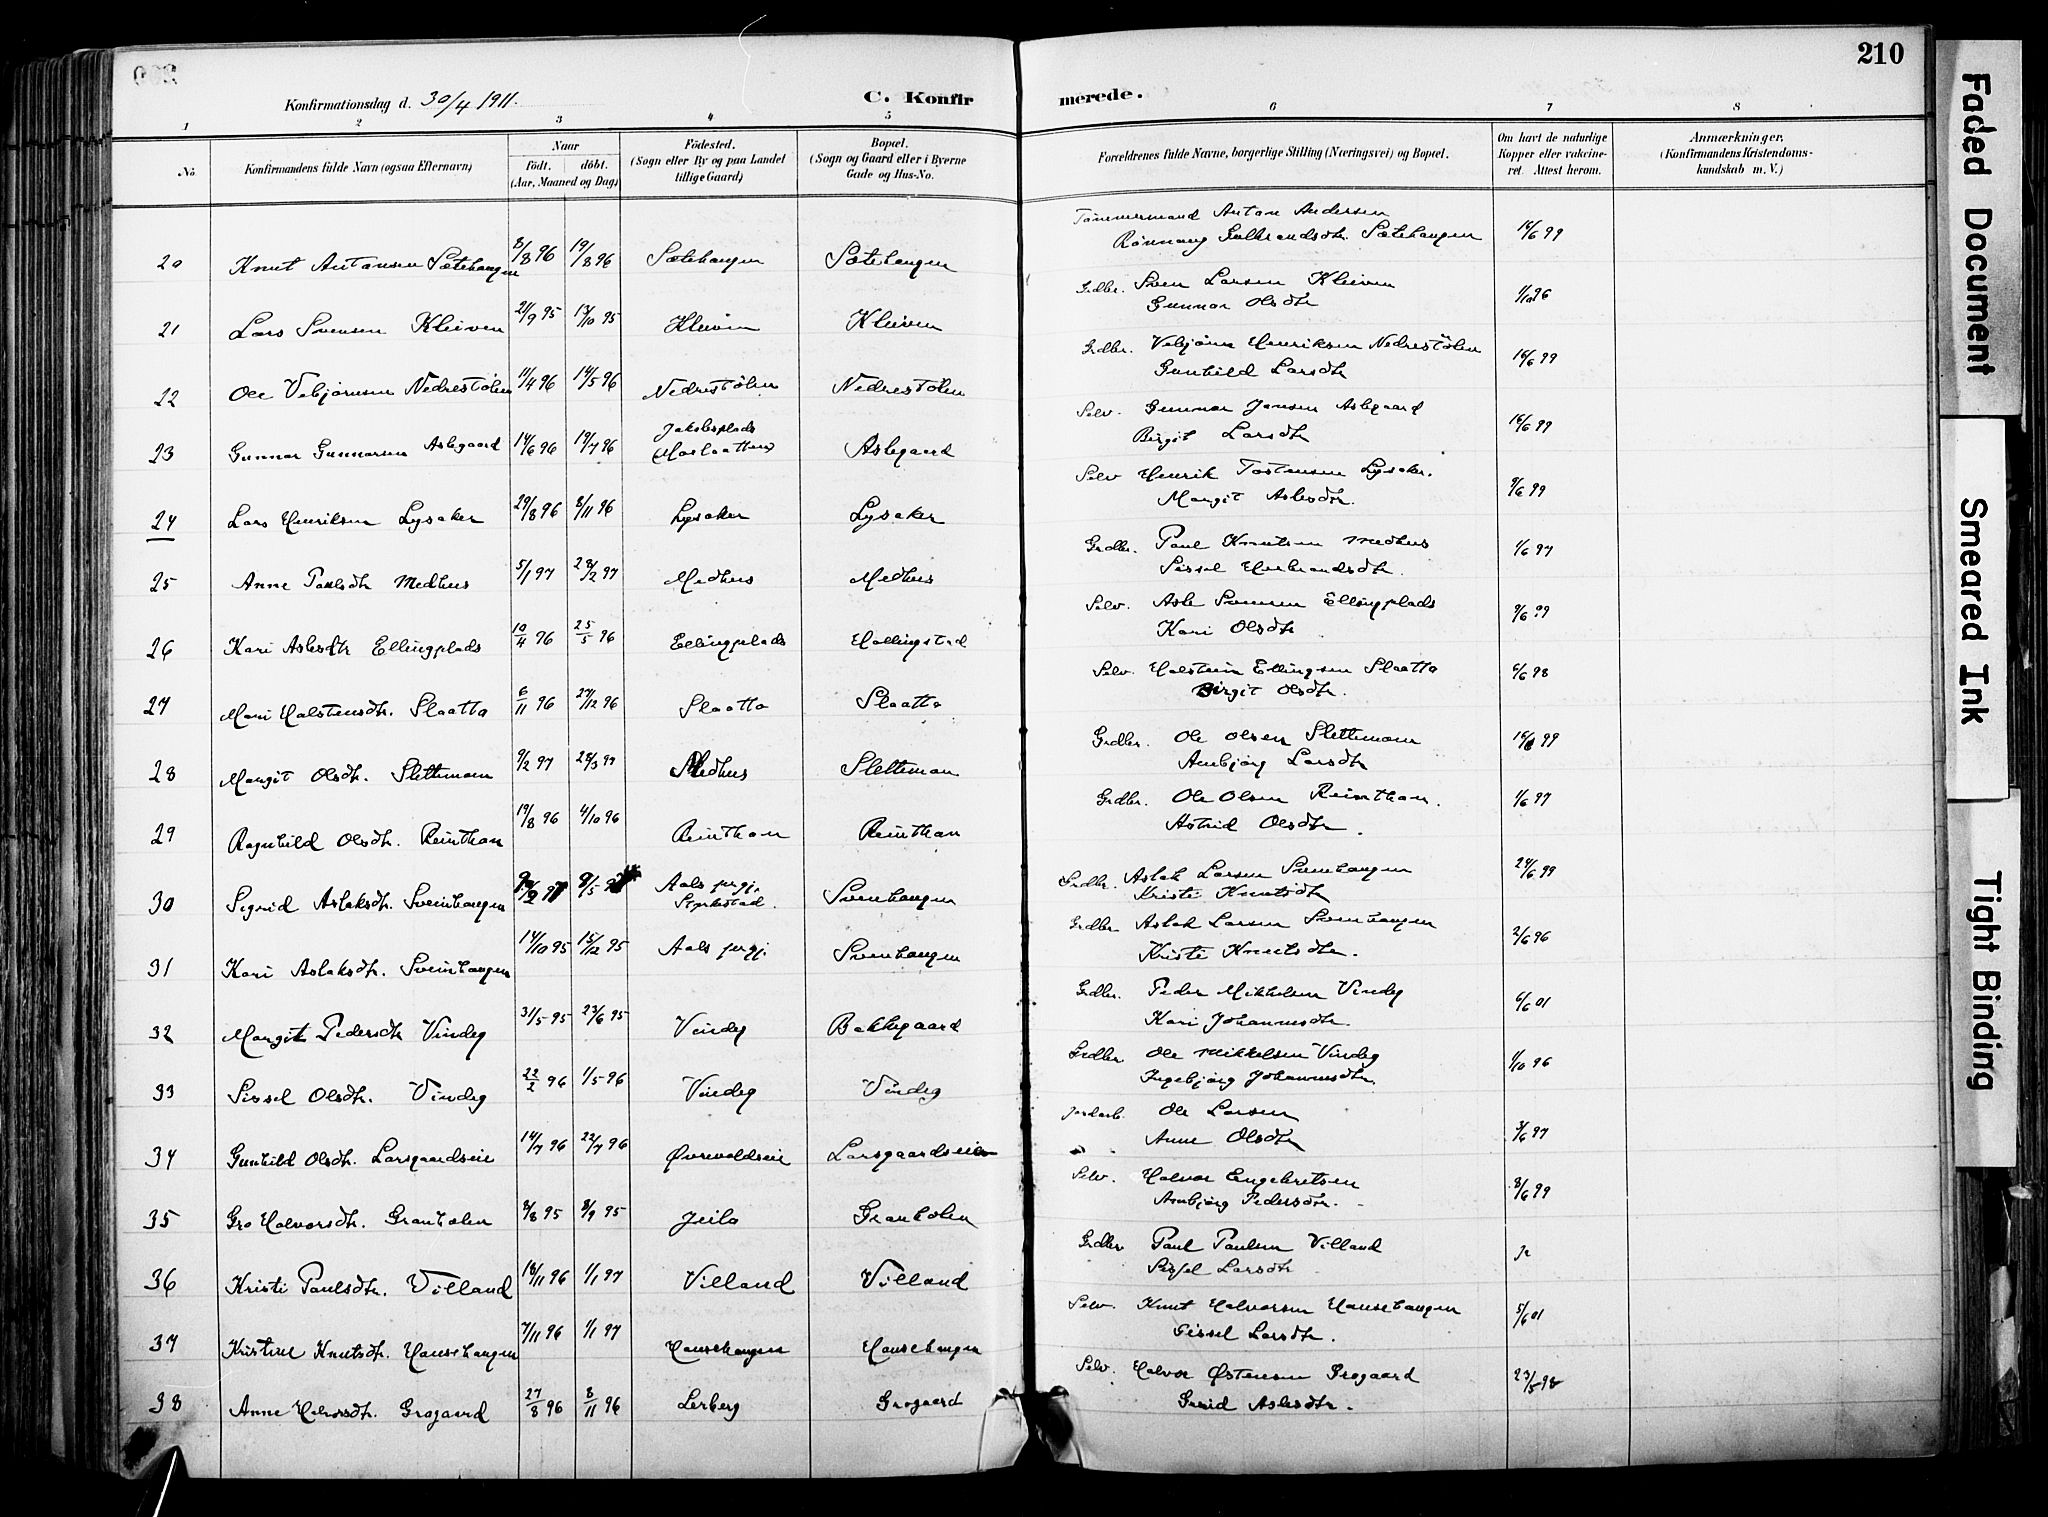 210
Konfirmationsdag d. 30/4 1911.
C. Konfirmerede.
1 2 3 4 5 6 7 8
No
Konfirmandens fulde Navn (ogsaa Efternavn)
Naar født. døbt. (Aar, Maaned og Dag)
Fødested. (Sogn eller By og paa Landet tillige Gaard)
Bopæl. (Sogn og Gaard eller i Byerne Gade og Hus-No.
Forældrenes fulde Navne, borgerlige Stilling (Næringsvei) og Bopæl.
Om havt de naturlige Kopper eller vakcineret. Attest herom.
Anmærkninger. (Konfirmandens Kristendomskundskab m. V.)
20 Knut Antonsen Sætehaugen 8/8 96 19/8 96 Sætehaugen Sætehaugen Tømmermand Anton Andersen
Rønnaug Gulbrandsdtr. Sætehaugen 16/6 99
21 Lars Svensen Kleiven 21/9 95 13/10 95 Kleiven Kleiven Grdbr. Sven Larsen Kleiven
Gunnor Olsdtr 1/10 96
22 Ole Vebjørnsen Nedrestølen 11/4 96 14/5 96 Nedrestølen Nedrestølen Grdbr. Vebjørn Henriksen Nedrestølen
Gunhild Larsdtr 16/6 99
23 Gunnar Gunnarsen Aslegaard 14/6 96 19/7 96 Jakobsplads Aslegaard Selv. Gunnar Jensen Aslegaard
Birgit Larsdtr 16/6 99
24 Lars Henriksen Lysaker 29/8 96 8/11 96 Lysaker Lysaker Selv Henrik Tostensen Lysaker.
Margit Aslesdtr. 9/6 99
25 Anne Paulsdtr Medhus 5/1 97 28/2 97 Medhus Medhus Grdbr. Paul Knutsen Medhus
Sissel Herbrandsdtr. 1/6 97
26 Kari Aslesdtr Ellingplads 10/4 96 25/5 96 Ellingplads Hallingstad Selv. Asle Svensen Ellingplads
Kari Olsdtr 9/6 99
27 Mari Halstensdtr. Slaatto 6/11 96 27/12 96 Slaatto Slaatto Selv. Halstein Ellingsen Slaatto
Birgit Olsdtr. 6/6 98
28 Margit Olsdtr. Slettemoen 9/2 97 28/3 97 Medhus Slettemoen Grdbr. Ole Olsen Slettemoen
Arnbjørg Larsdtr 16/6 99
29 Ragnhild Olsdtr. Reinthon 19/8 96 4/10 96 Reinthon Reinthon Grdbr. Ole Olsen Reinthon.
Astrid Olsdtr. 1/6 97
30 Sigrid Aslaksdtr. Sveinhaugen Aals prgj. Sveinhaugen Grdbr. Aslak Larsen Sveinhaugen
Kristi Knutsdtr 24/6 99
31 Kari Aslaksdtr. Sveinhaugen 14/10 95 15/12 95 Aals prgj. Sveinhaugen Grdbr Aslak Larsen Sveinhaugen
Kristi Knutsdtr. 2/6 96
32 Margit Pedersdtr Vindeg 31/5 95 23/6 95 Vindeg Bakkegaard Grdbr. Peder Mikkelsen Vindeg
Kari Johannesdtr. 6/6 01
33 Sissel Olsdtr. Vindeg 22/2 96 1/5 96 Vindeg Vindeg Grdbr Ole Mikkelsen Vindeg
Ingebjørg Johannesdtr. 1/10 96
34 Gunhild Olsdtr. Larsgaardseie 14/7 96 22/7 96 Øvrevoldseie Larsgaardseie Jordarb. Ole Larsen
Anne Olsdtr 3/6 97
35 Gro Halvorsdtr. Granholen 2/8 95 8/9 95 Jeilo Granholen Selv. Halvor Engebretsen
Arnbjørg Pedersdtr. 8/6 99
36 Kristi Paulsdtr. Villand 18/11 96 1/1 97 Villand Villand Grdbr Paul Paulsen Villand
Sissel Larsdtr
37 Kristine Knutsdtr. Hansehaugen 7/11 96 1/1 97 Hansehaugen Hansehaugen Selv. Knut Halvorsen Hansehaugen
Sissel Larsdtr. 5/6 01
38 Anne Halvorsdtr. Grogaard 27/8 96 8/11 96 Lerberg Grogaard Selv. Halvor Østensen Grogaard
Gurid Aslesdtr. 23/5 98
Faded Document
Smeared Ink
Tight Binding